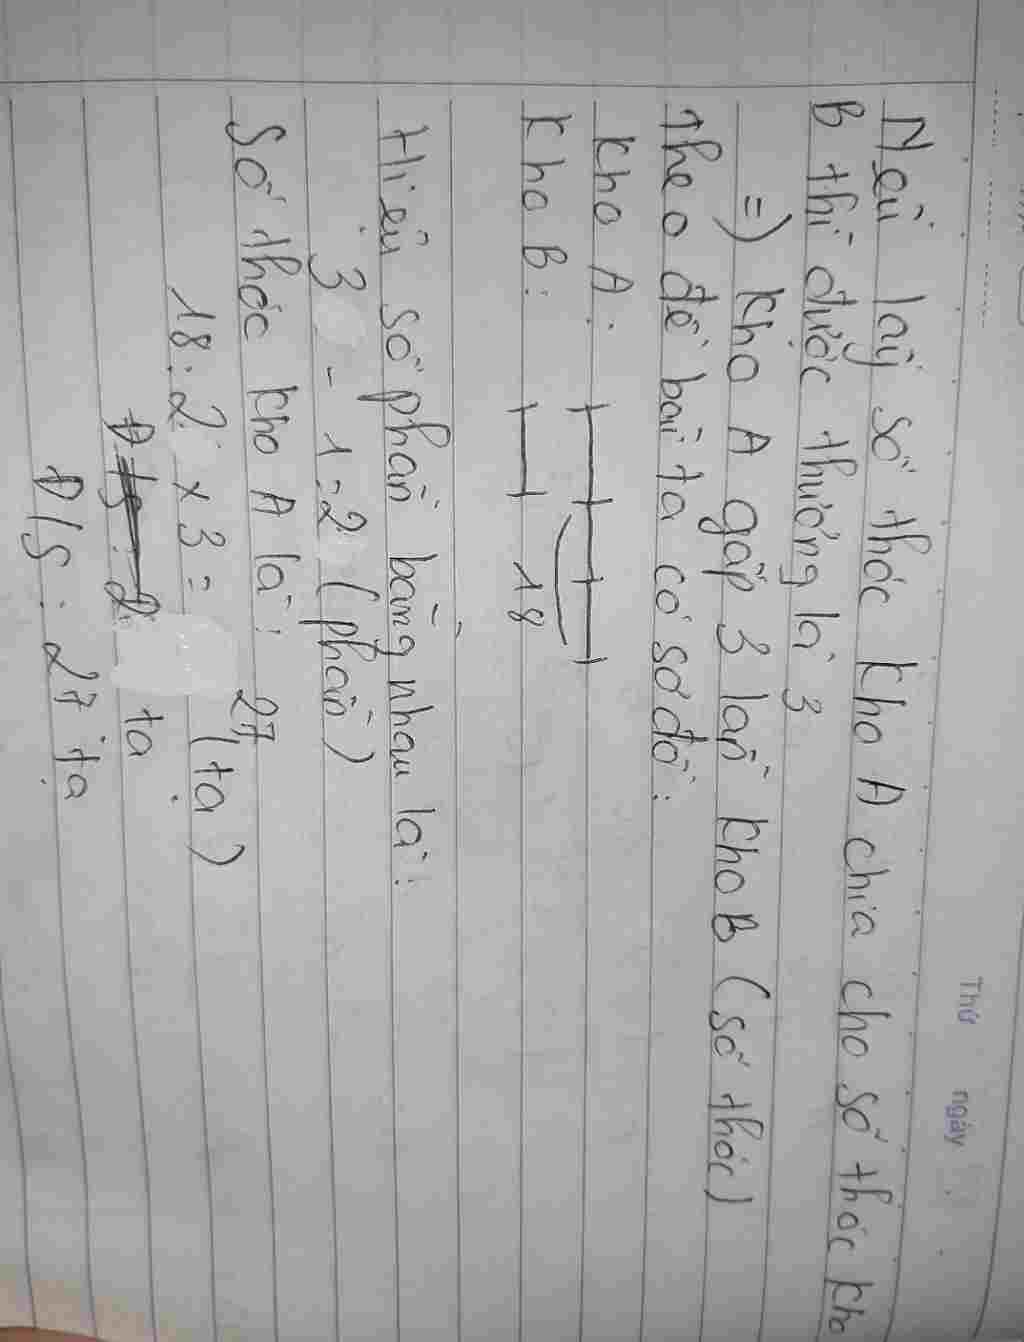 Thứ ngày
Nếu lấy số thóc kho A chia cho số thóc kho
B thì được thương là 3
=) kho A gấp 3 lần kho B (số thóc)
Theo đề bài ta có sơ đồ:
Kho A:
Kho B: 18
Hiệu số phần bằng nhau là:
3 - 1 = 2 (phần)
Số thóc kho A là:
18 : 2 x 3 = 27 (tạ)
tạ
Đ/S : 27 tạ